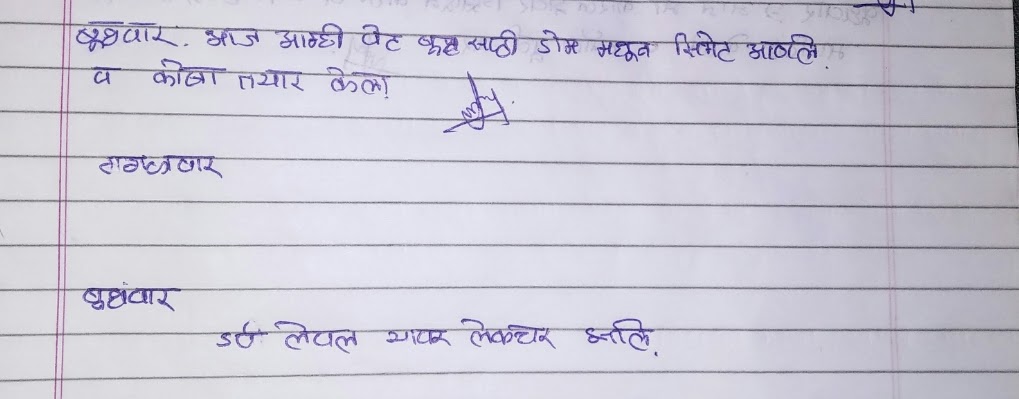 बुधवार. आज आम्ही वेट साठी डोम मधून सिमेट आणले.
व कोबा तयार केला
बुधवार
लेवल यावर लेकचर झाले.